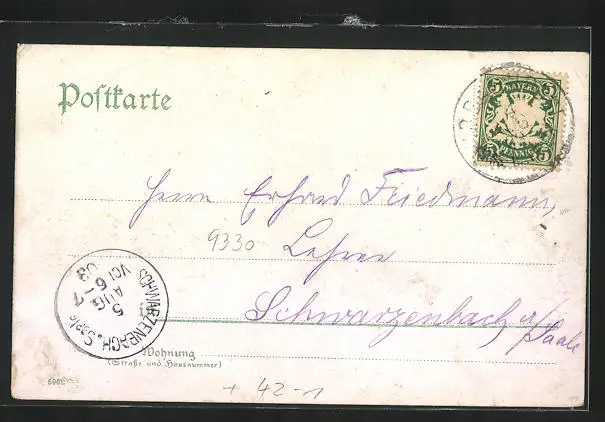 Postkarte
5 BAYERN 5
5 PFENNIG 5
Herrn Erhard Friedmann,
9330
Lehrer
Schwarzenbach a/Saale
SCHWARZENBACH a. Saale
5 AUG
6-7
03
Wohnung
(Straße und Hausnummer)
+ 42-1